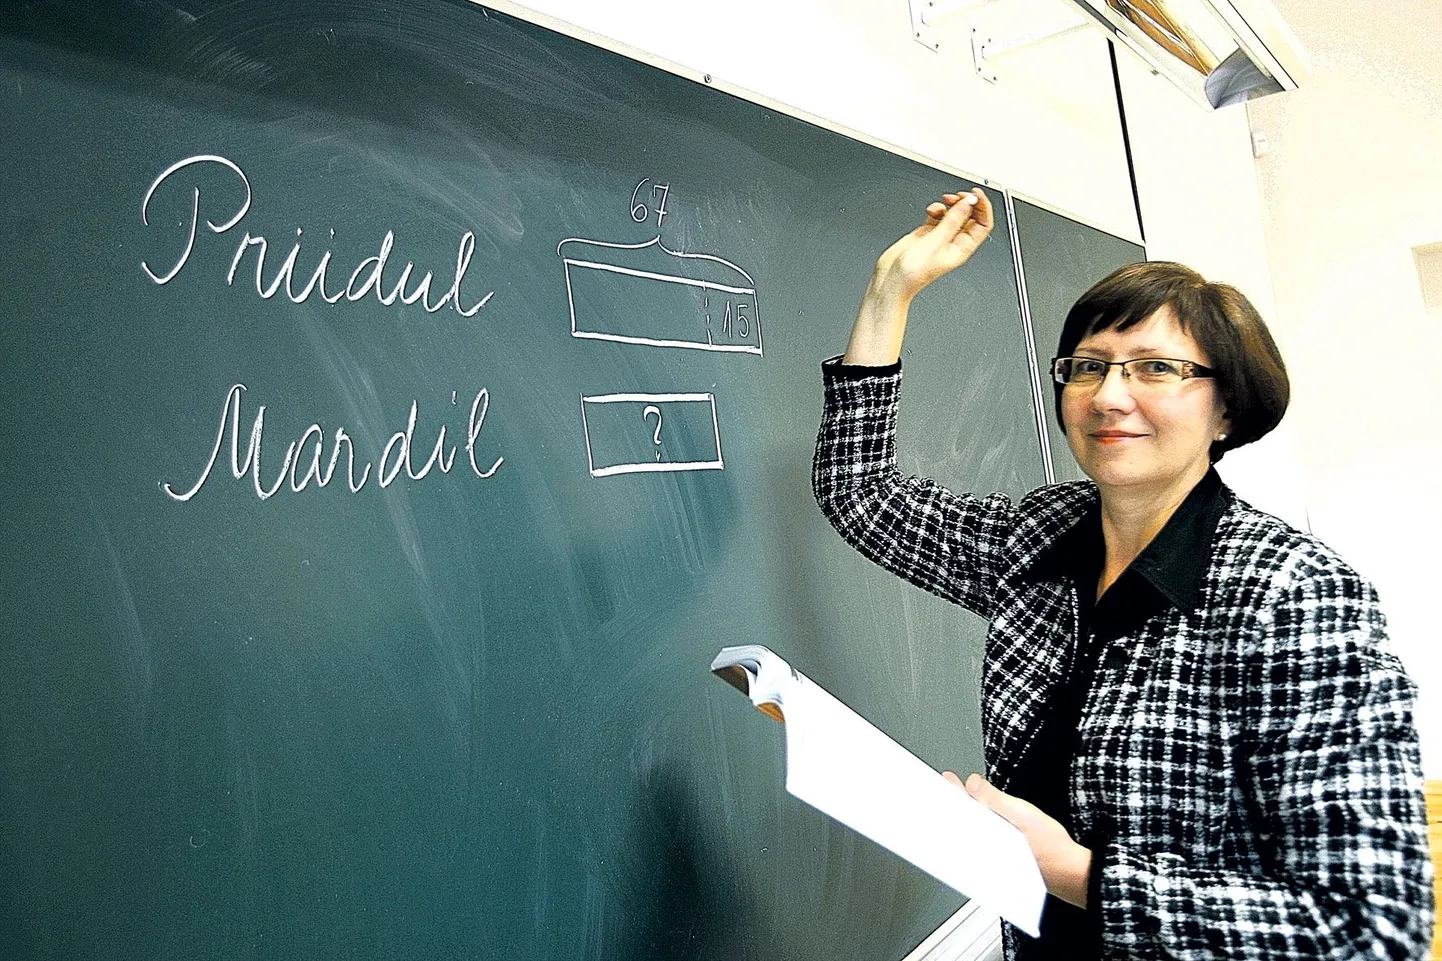 67
Priidul
15
Mardil
?